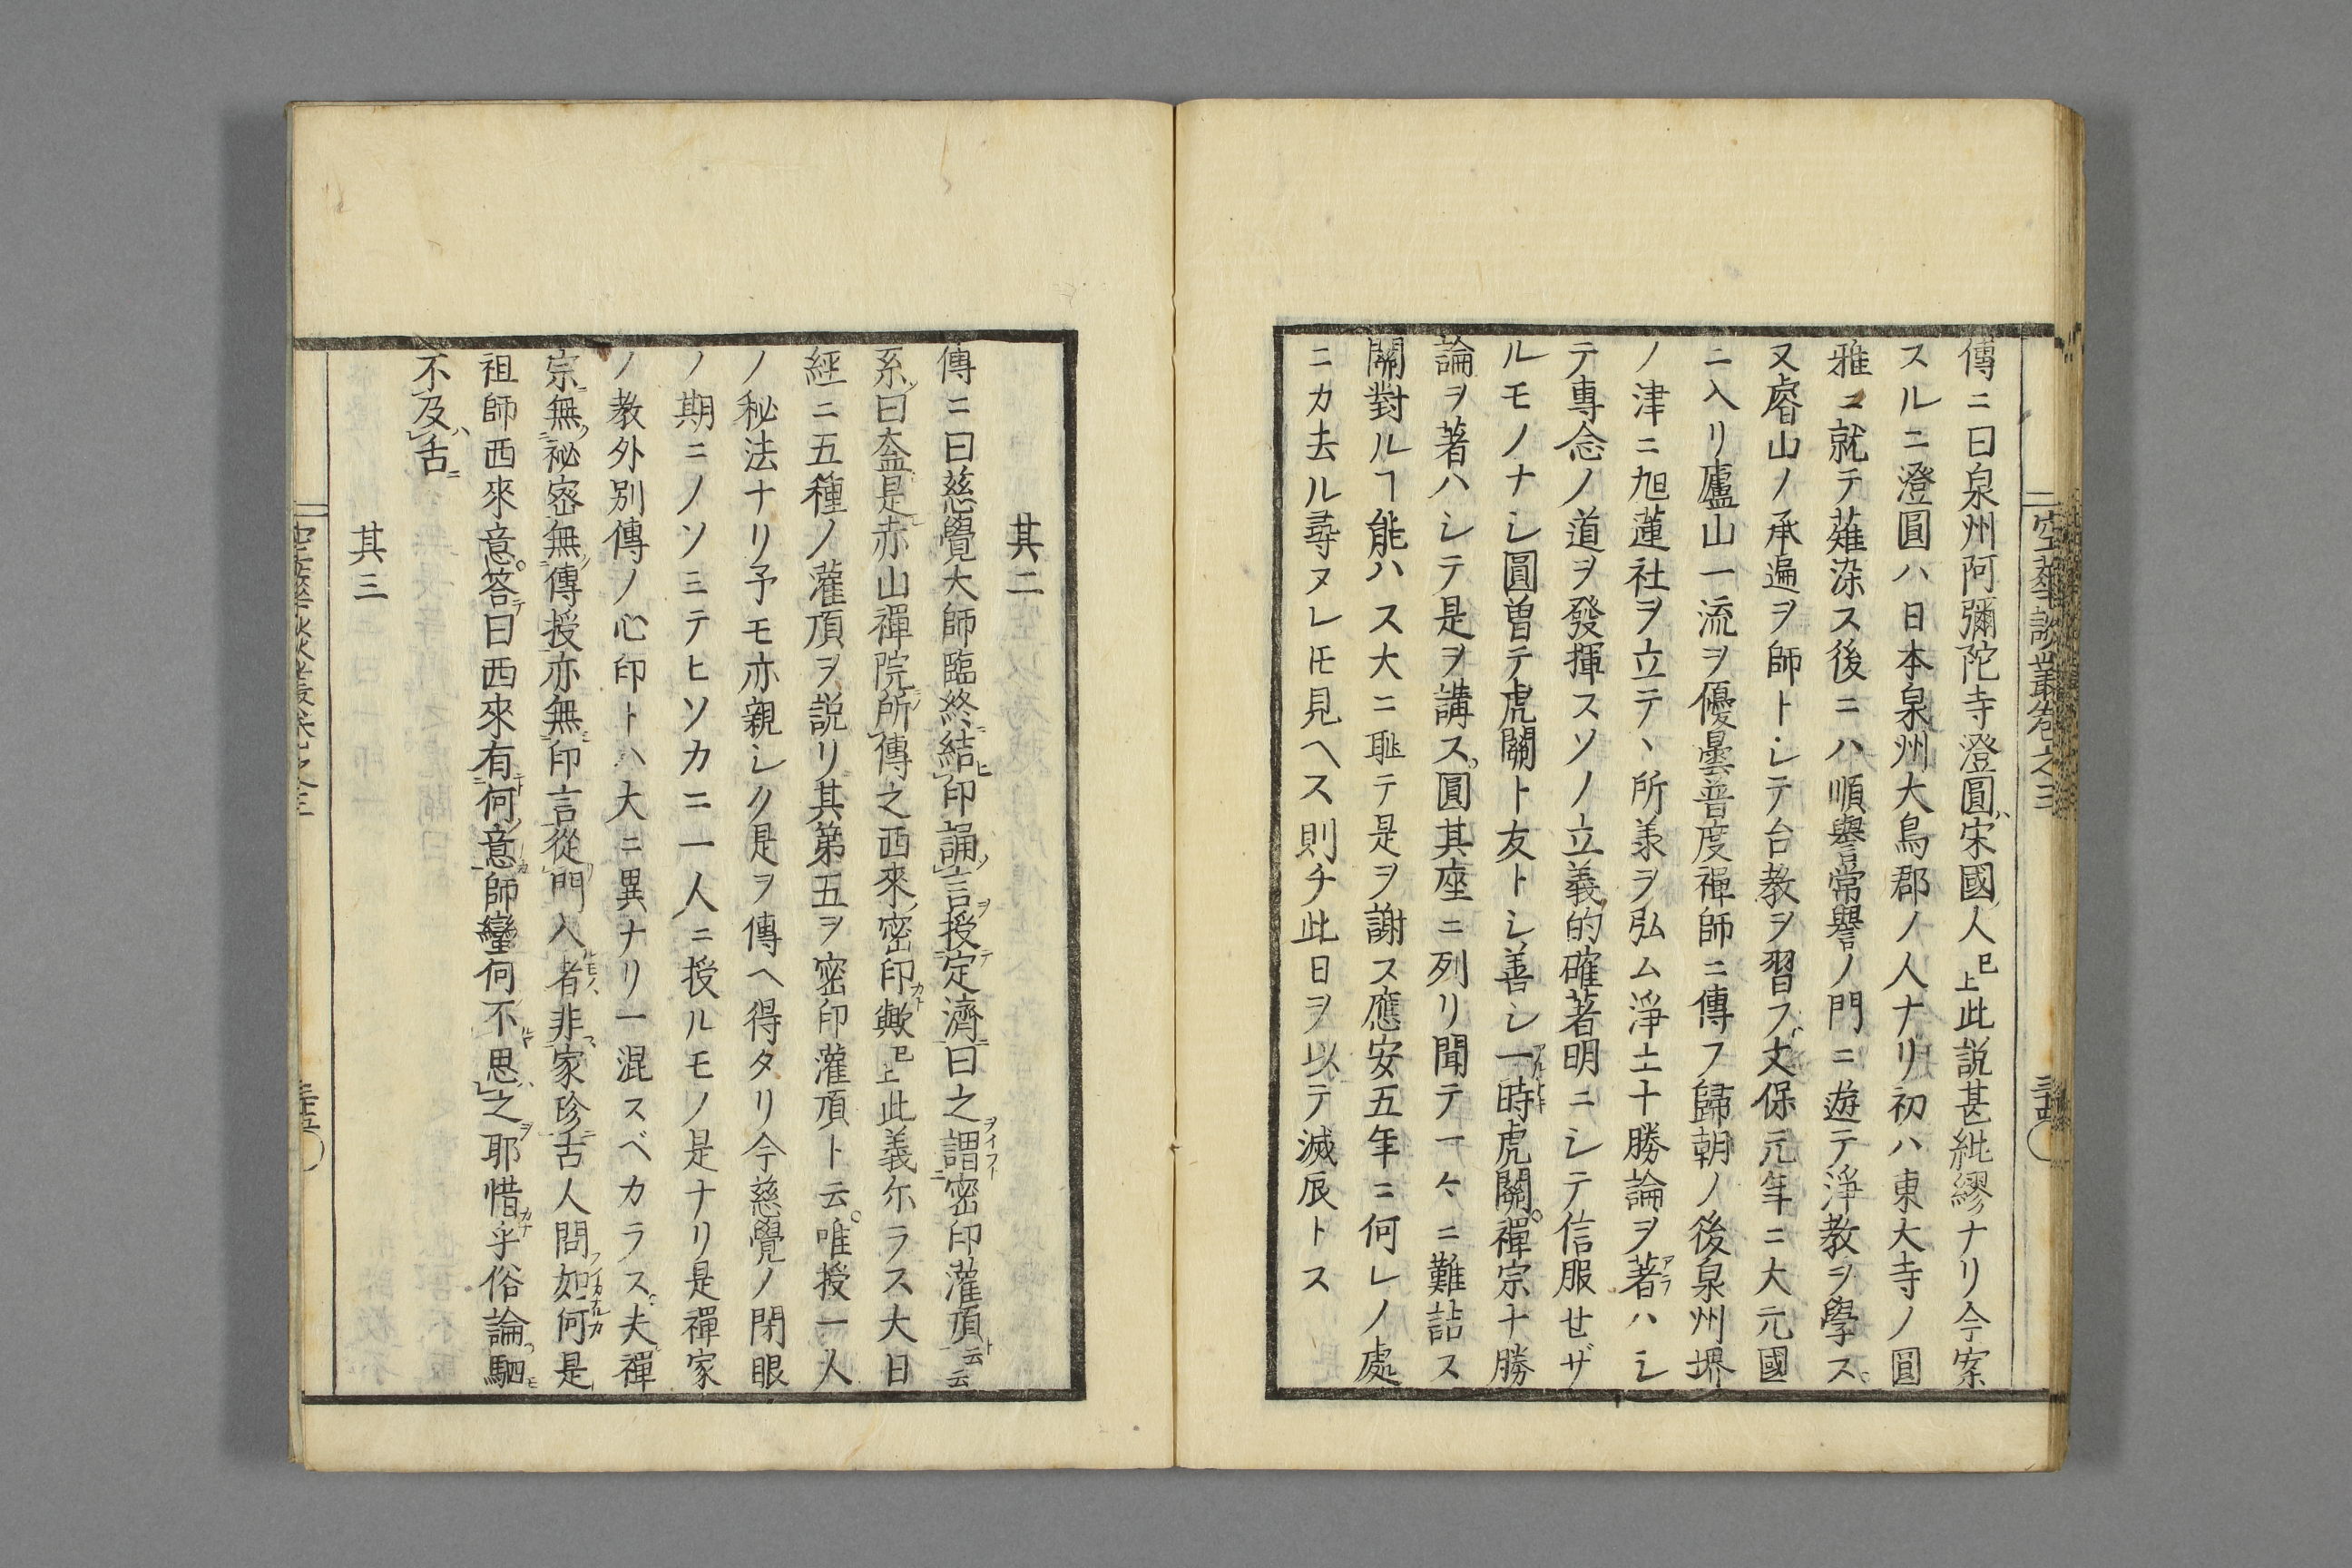 空華談叢卷之三
傳ニ曰泉州阿彌陀寺澄圓ハ宋國ノ人已上此説甚紕繆ナリ今案
スルニ澄圓ハ日本泉州大鳥郡ノ人ナリ初ハ東大寺ノ圓
雅ニ就テ薙染ス後ニハ順譽常譽ノ門ニ遊テ淨教ヲ學ス
又睿山ノ承遍ヲ師トシテ台教ヲ習フ文保元年ニ大元國
ニ入リ廬山一流ヲ優曇普度禪師ニ傳フ歸朝ノ後泉州堺
ノ津ニ旭蓮社ヲ立テヽ所承ヲ弘ム淨土十勝論ヲ著アラハシ
テ專念ノ道ヲ發揮スソノ立義的確著明ニシテ信服セザ
ルモノナシ圓曽テ虎關ト友トシ善シ一時アルトキ虎關禪宗十勝
論ヲ著ハシテ是ヲ講ス圓其座ニ列リ聞テ一々ニ難詰ス
關對ルヿ能ハス大ニ耻テ是ヲ謝ス應安五年ニ何レノ處
ニカ去ル尋ヌレ𪜈見ヘス則チ此日ヲ以テ滅辰トス
其二
傳ニ曰慈覺大師臨終ニ結ヒ印誦ノ言ヲ授テ定濟ニ曰之謂ヲイフト密印灌頂ト云云
系ノ曰盍是赤山禪院所傳之西來ノ密印歟カト已上此義尓ラス大日
經ニ五種ノ灌頂ヲ説リ其第五ヲ密印灌頂ト云唯授一人
ノ秘法ナリ予モ亦親シク是ヲ傳ヘ得タリ今慈覺ノ閉眼
ノ期ニノソミテヒソカニ一人ニ授ルモノ是ナリ是禪家
ノ教外別傳ノ心印トハ大ニ異ナリ一混スベカラス夫禪
宗ニ無ク秘密無傳授亦無印言從門入ル者モノハ非ス家珍ニ古人問フ如何イカナルカ是
祖師西來意答テ曰西來有テ何ノ意カ師蠻何不ルヤ思ハ之ヲ耶惜カナ乎俗論ツモ駟
不及ハ舌ニ
其三